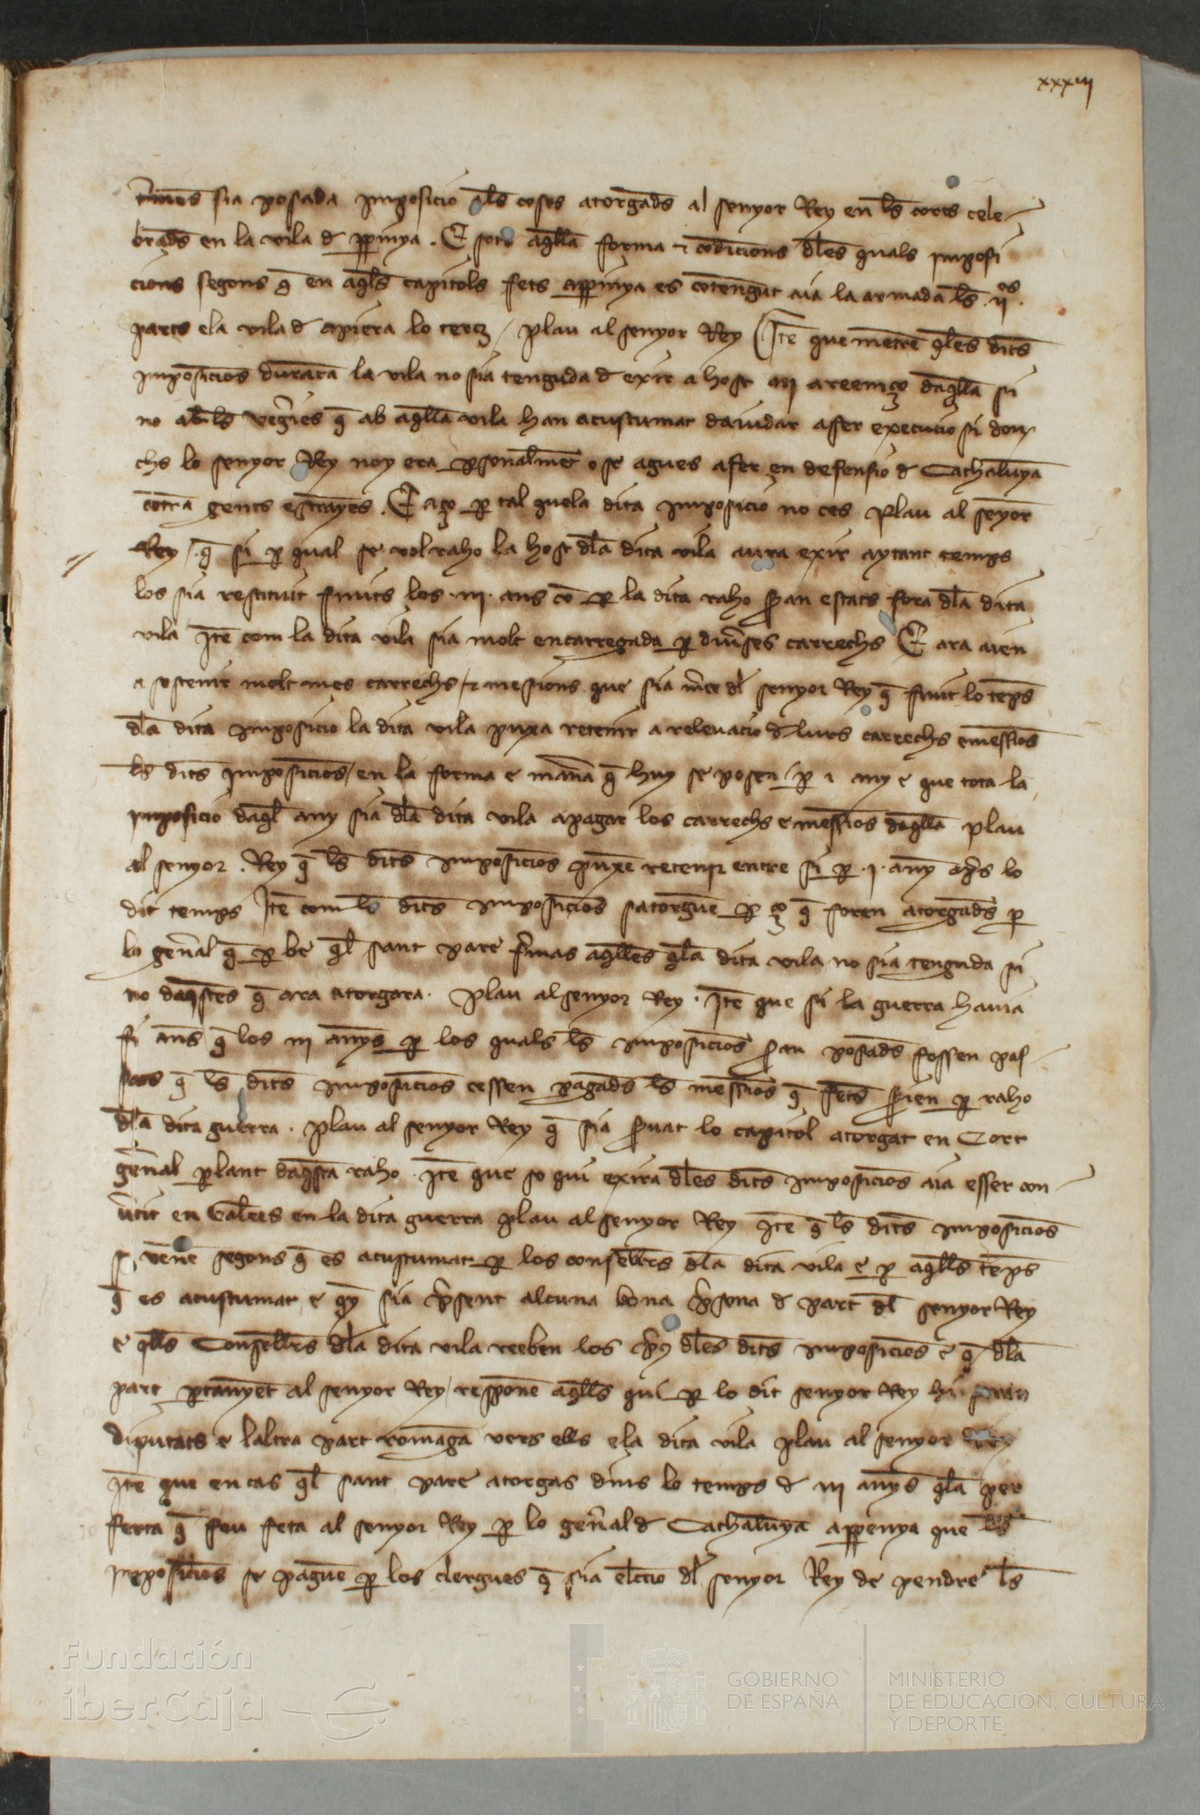 xxxiij
termens sia posada imposicio a les coses atorgades al senyor Rey en les corts cele-
brades en la vila d perpinya . E sots aqlla forma e condicions dles quals imposi
cions segons q en aqlls capitols fets a ppinya es contengut aia la armada les .ii.
parts e la vila d apiera lo terç / plau al senyor Rey Ite que mentre qles dites
imposicions duraran la vila no sia tenguda d exir a host ni a reemço daqlla si
no ab les vegries q ab aqlla vila han acustumat daiudar a fer execucio si don-
chs lo senyor Rey noy era psonalmet o se agues a fer en defensio d Cathaluya
contra gents estranyes . E aço p tal que la dita imposicio no ces Plau al senyor
Rey / q si p qual se vol raho la host dla dita vila aura exir aytant temps
los sia restituit finits los .iii. ans co p la dita raho seran estats fora dla dita
vila Ite com la dita vila sia molt encarregada p diverses carrechs E ara aien
a sostenir molt mes carrechs / e mesions que sia merce dl senyor Rey q finit lo temps
dla dita imposicio la dita vila puxa retenir a relevacio d lurs carrechs e messions
les dites imposicions / en la forma e manera q huy se posen / p i any e que tota la
imposicio daql any sia dla dita vila a pagar los carrechs e messions daqlla plau
al senyor . Rey q les dites imposicions puxe retenir entre si p .i. any apres lo
dit temps Ite com les dites imposicions satorguen p ço q foren atorgades p
lo general q p be ql sant pare fermas aqlles qla dita vila no sia tenguda si
no daqstes q ara atorgara . Plau al senyor Rey . Ite que si la guerra havia
fi ans q los iii anys p los quals les imposicions seran posades fossen pas-
sats q les dites imposicions cessen pagades les messions q fetes serien p raho
dla dita guerra . Plau al senyor Rey q sia servat lo capitol atorgat en Cort
general parlant daqsta raho . Ite que so qui exira dles dites imposicions aia esser con-
vertit en Galees en la dita guerra plau al senyor Rey Ite q les dites imposicions
se venen segons q es acustumat p los consellers dla dita vila e p aqlls temps
q es acustumat e qy sia present alcuna bona persona d part dl senyor Rey
e qlls Consellers dla dita vila reeben los preus dles dites imposicions e q dla
part ptanyent al senyor Rey / responen aqlls qui p lo dit senyor Rey hi seran
diputats e laltra part romanga vers ells e la dita vila plau al senyor Rey
Ite que en cas ql sant pare atorgas dins lo temps d iii anys qla per
ferta q feu feta al senyor Rey p lo general d Cathalunya a ppenya que les
imposicions se paguen p los clergues q sia eleccio dl senyor Rey de pendre les
Fundación
iberCaja
GOBIERNO
DE ESPAÑA
MINISTERIO
DE EDUCACIÓN, CULTURA
Y DEPORTE